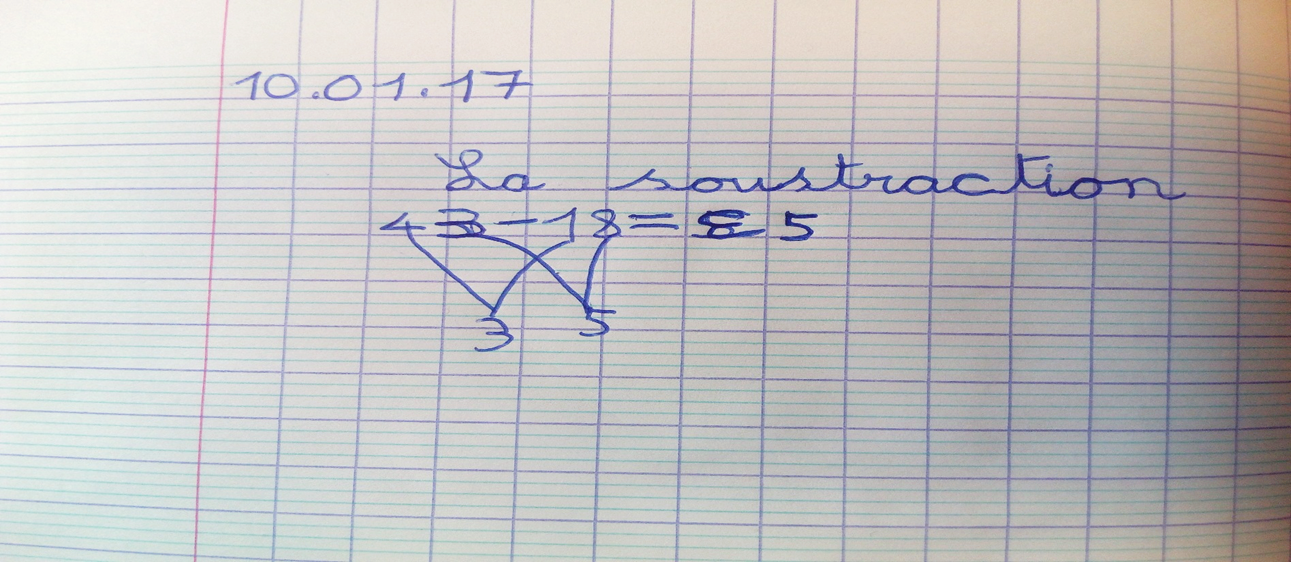 10.01.17
La soustraction
43-18= 5
3 5